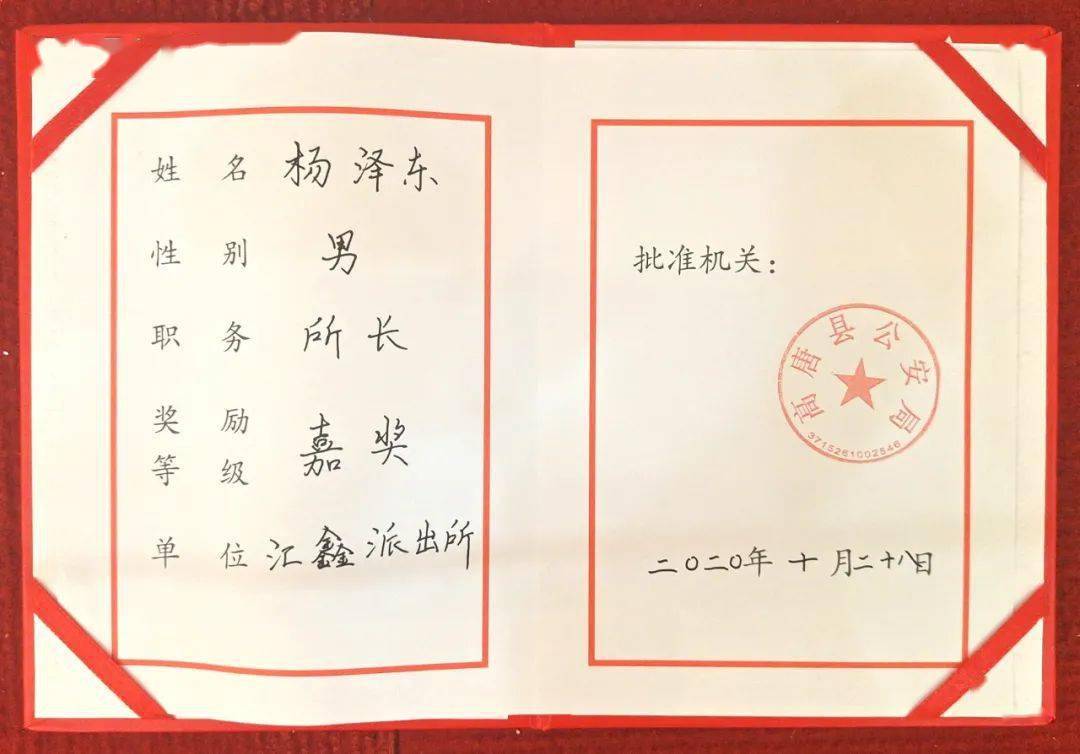 姓名 杨泽东
性别 男
职务 所长
奖励
等级 嘉奖
单位 汇鑫派出所
批准机关：
高唐县公安局
3715261002546
二〇二〇年十月二十八日